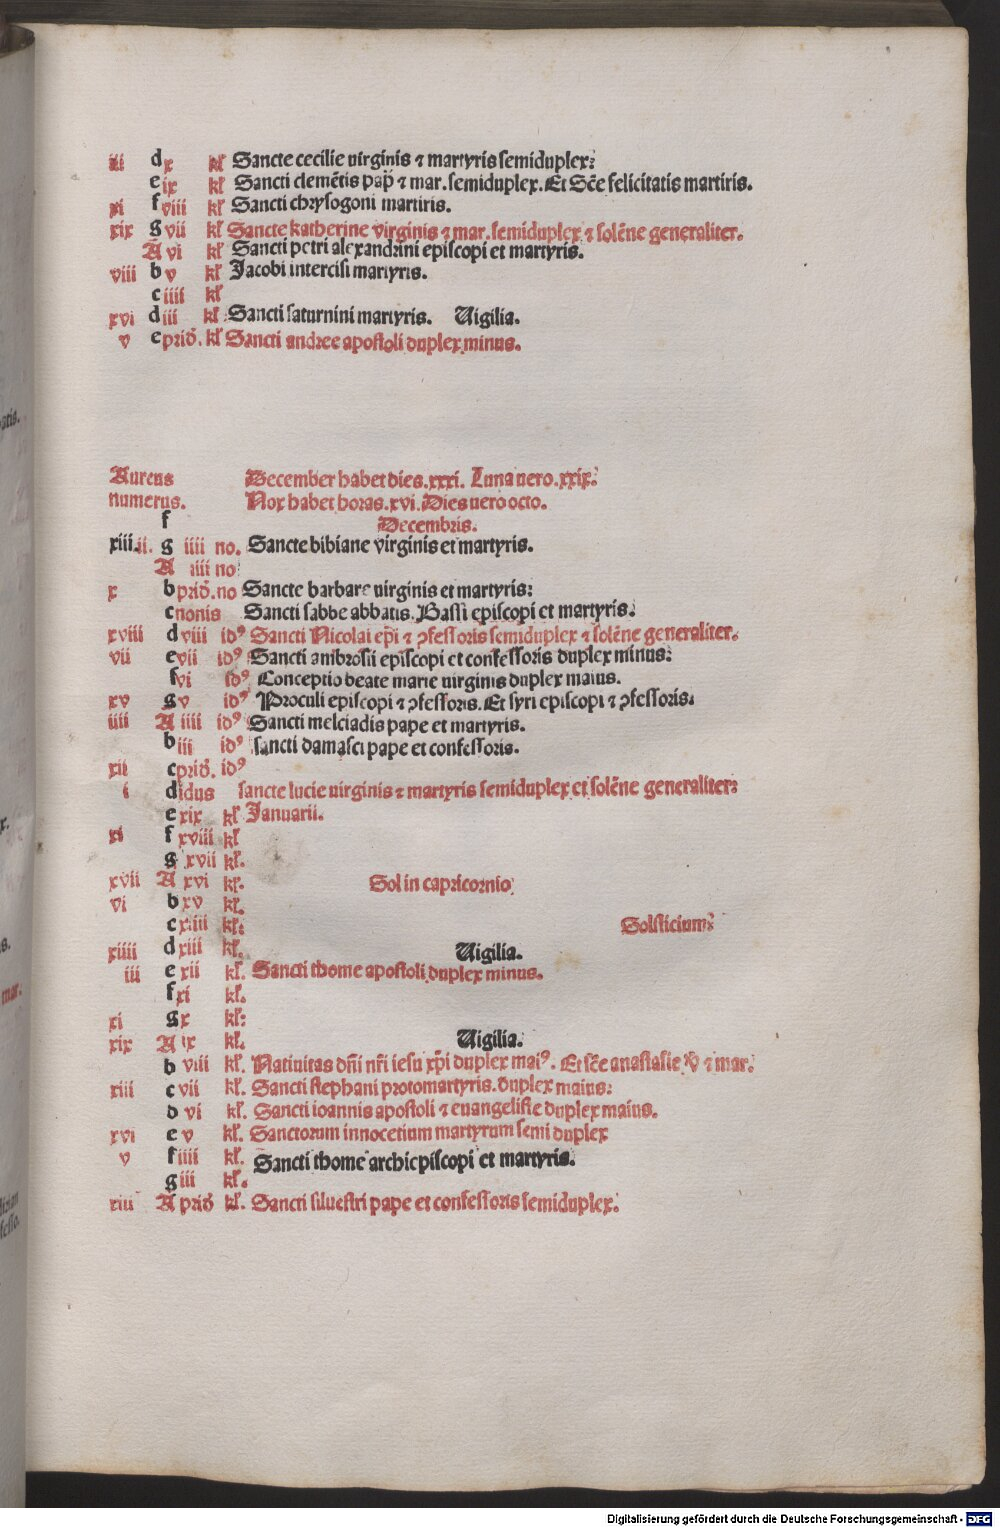 iii d x kł Sancte cecilie uirginis ⁊ martyris semiduplex:
e ix kł Sancti clemētis pap̄ ⁊ mar. semiduplex. Et Scē felicitatis martiris.
xi f viii kł Sancti chrysogoni martiris.
xix g vii kł Sancte katherine virginis ⁊ mar. semiduplex ⁊ solēne generaliter.
A vi kł Sancti petri alexandrini episcopi et martyris.
viii b v kł Jacobi intercisi martyris.
c iiii kł
xvi d iii kł Sancti saturnini martyris. Uigilia.
v e prid̄. kł Sancti andree apostoli duplex minus.
Aureus December habet dies. xxxi. Luna uero. xxix.
numerus. Nox habet horas. xvi. Dies uero octo.
f Decembris.
xiii. ii. g iiii no. Sancte bibiane virginis et martyris.
A iiii no
x b prid̄. no Sancte barbare uirginis et martyris:
c nonis Sancti sabbe abbatis. Bassi episcopi et martyris.
xviii d viii idꝰ Sancti Nicolai ep̄i ⁊ ꝯfessoris semiduplex ⁊ solēne generaliter.
vii e vii idꝰ Sancti ambrosii episcopi et confessoris duplex minus:
f vi idꝰ Conceptio beate marie uirginis duplex maius.
xv g v idꝰ Proculi episcopi ⁊ ꝯfessoris. Et syri episcopi ⁊ ꝯfessoris:
iiii A iiii idꝰ Sancti melciadis pape et martyris.
b iii idꝰ sancti damasci pape et confessoris.
xii c prid̄. idꝰ
i d idus sancte lucie uirginis ⁊ martyris semiduplex et solēne generaliter:
e xix kł Januarii.
xi f xviii kł
g xvii kł.
xvii A xvi kł. Sol in capricornio
vi b xv kł.
c xiiii kł: Solsticium:
xiiii d xiii kł. Uigilia.
iii e xii kł. Sancti thome apostoli duplex minus.
f xi kł.
xi g x kł:
xix A ix kł. Uigilia.
b viii kł. Natiuitas dn̄i nr̄i iesu xp̄i duplex maiꝰ. Et scē anastasie v̄ ⁊ mar.
xiii c vii kł. Sancti stephani protomartyris. duplex maius:
d vi kł. Sancti ioannis apostoli ⁊ euangeliste duplex maius.
xvi e v kł. Sanctorum innocetium martyrum semi duplex
v f iiii kł. Sancti thome archiepiscopi et martyris.
g iii kł.
xiii A prid̄ kł. Sancti siluestri pape et confessoris semiduplex.
Digitalisierung gefördert durch die Deutsche Forschungsgemeinschaft - DFG